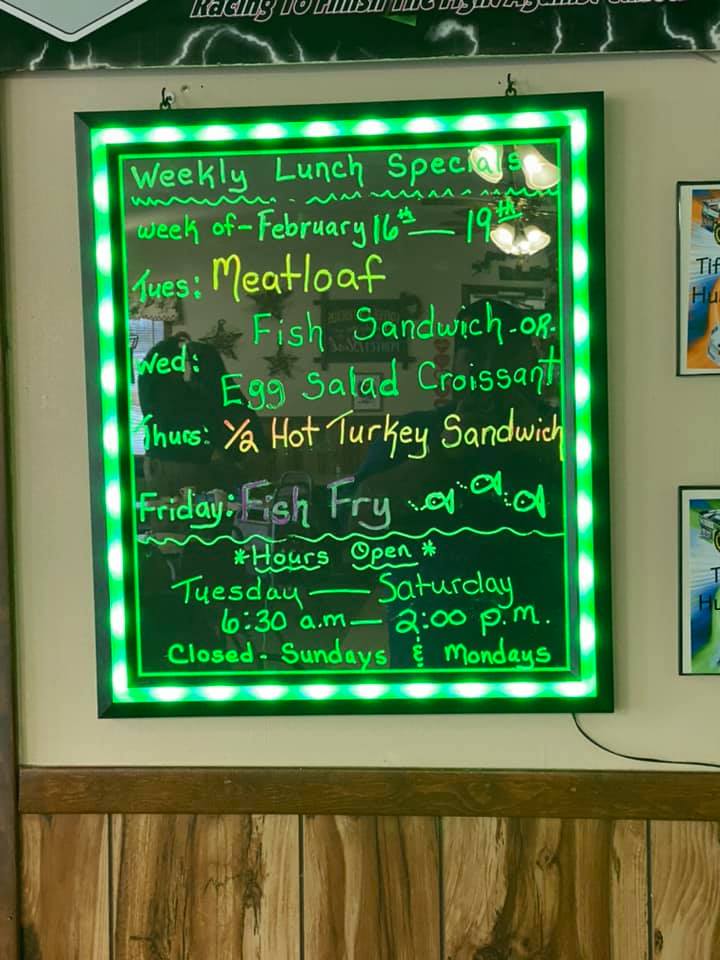 Racing To Finish The Fight Against
Weekly Lunch Specials
week of - February 16th — 19th
Tues: Meatloaf
Fish Sandwich - OR -
Wed:
Egg Salad Croissant
Thurs: 1/2 Hot Turkey Sandwich
Friday: Fish Fry
*Hours Open*
Tuesday — Saturday
6:30 a.m — 2:00 p.m.
Closed - Sundays & Mondays
Tif
Hu
T
Hu